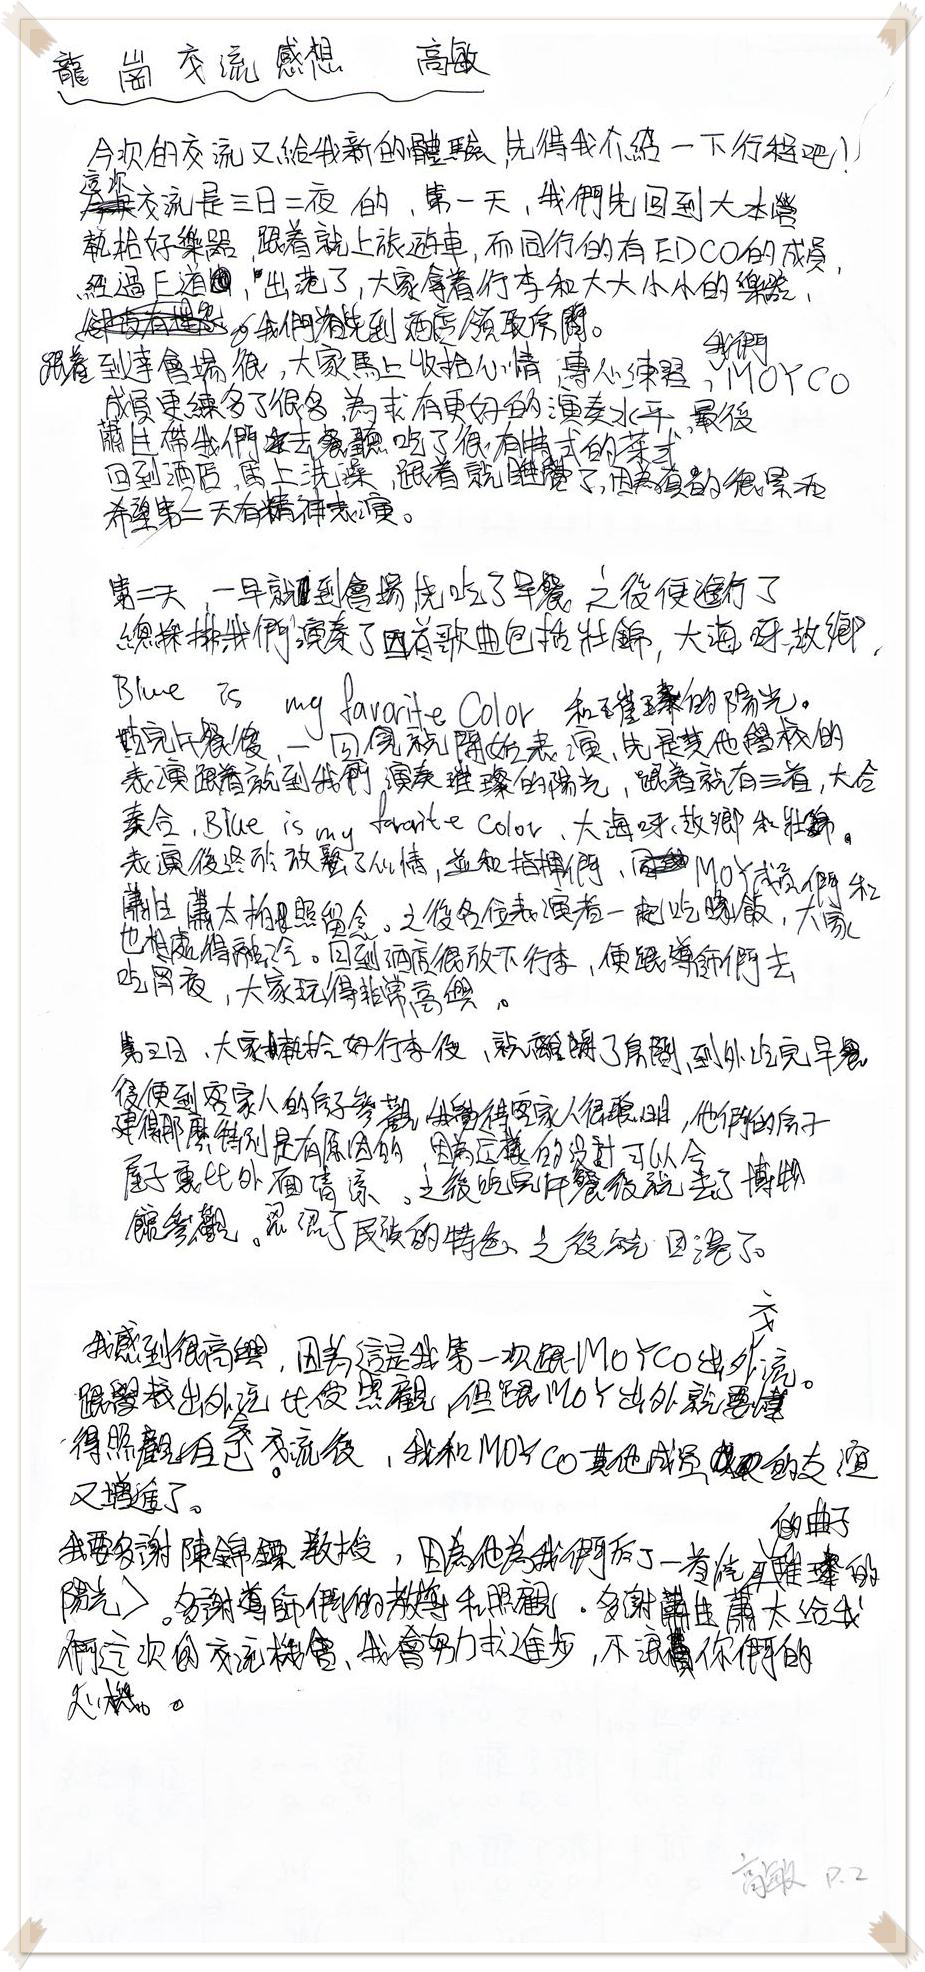 龍崗交流感想 高敏
今次的交流又給我新的體驗,先得我介紹一下行程吧!
這次交流是三日二夜的,第一天,我們先回到大本營
執拾好樂器,跟着就上旅遊車,而同行的有EDCO的成員,
經過,出港了,大家拿着行李和大大小小的樂器,
我們首先到酒店領取房間。
跟着到達會場後,大家馬上收拾心情,專心練習,我們MOYCO
成員更練多了很多,為求有更好的演奏水平,最後
蕭生帶我們去餐廳吃了很有特式的菜式
回到酒店,馬上洗澡,跟着就睡覺了,因為真的很累和
希望第二天有精神表演。
第二天,一早就到會場先吃了早餐,之後便進行了
總採排我們演奏了四首歌曲包括壯錦,大海呀故鄉,
Blue is my favorite Color 和璀璨的陽光。
吃完午餐後,一回兒就開始表演,先是其他學校的
表演跟着就到我們演奏璀璨的陽光,跟着就有三首,大合
奏合,Blue is my favorite color、大海呀故鄉和壯錦。
表演後終於放鬆了心情,並和指揮們、MOY成員們和
蕭生蕭太拍照留念。之後各位表演者一起吃晚飯,大家
也相處得融洽。回到酒店後放下行李,便跟導師們去
吃宵夜,大家玩得非常高興。
第三日,大家執拾好行李後,就離開了房間,到外吃完早餐
後便到客家人的房子參觀,我覺得客家人很聰明,他們的房子
建得那麼特別是有原因的,因為這樣的設計可以令
屋子裏比外面清涼。之後吃完午餐後就去了博物
館參觀。認了民族的特色、之後就回港了。
我感到很高興,因為這是我第一次跟MOYCO出外交流。
跟學校出外交流比受照觀,但跟MOY出外就要懂
得照觀自己。交流後,我和MOYCO其他成員的友誼
又增進了。
我要多謝陳錦標教授,因為他為我們了一首璀璨的
陽光>的曲子。多謝導師們的教導和照觀。多謝蕭生蕭太給我
們這次的交流機會、我會努力求進步,不浪費你們的
心機。
高敏 P.2